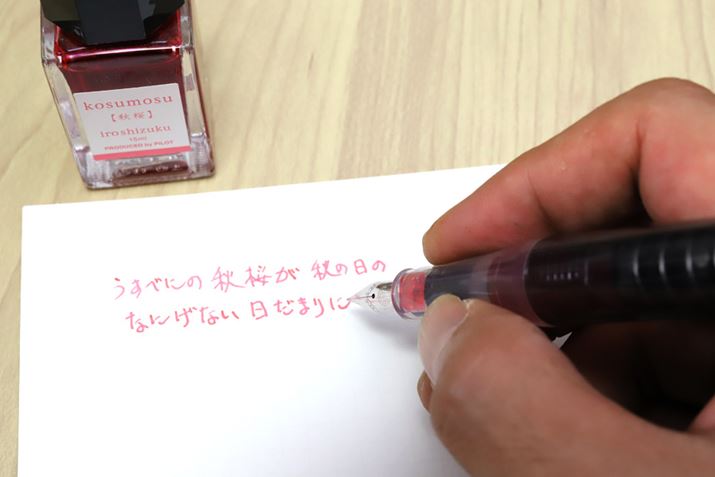 kosumosu
【秋桜】
iroshizuku
15ml
PRODUCED by PILOT
うすべにの 秋桜が 秋の日の
なにげない 日だまりに